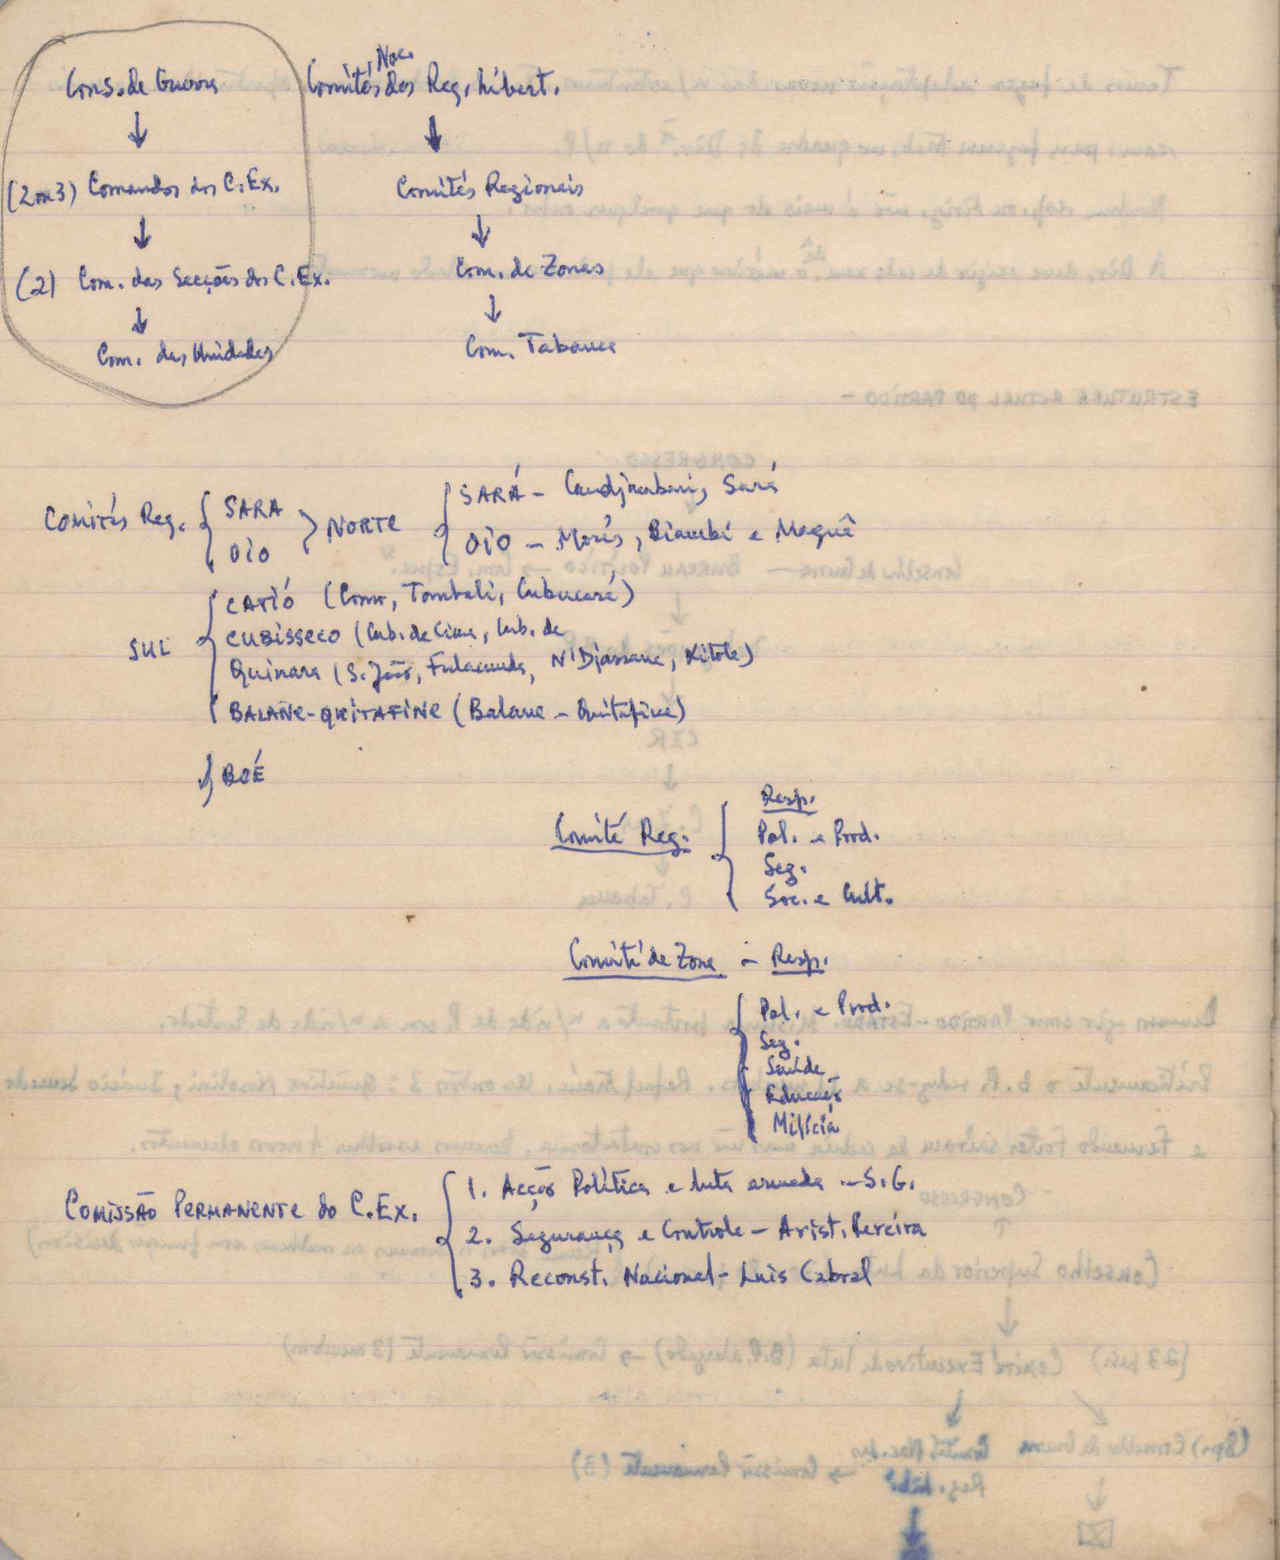 Cons. de Guerra
↓
(2 ou 3) Comandos dos C. Ex.
↓
(2) Com. das Secções dos C. Ex.
↓
Com. das Unidades
Comités Nac. das Reg. Libert.
↓
Comités Regionais
↓
Com. de Zonas
↓
Com. Tabanca
Comités Reg. { SARA
OIO } NORTE { SARÁ - Candjambari, Sará
OIO - Morés, Biambi e Maquê
SUL { CATIÓ (Como, Tombali, Cubucaré)
CUBISSECO (Cub. de Cima, Cub. de
Quinara (S. João, Fulacunda, N'Djassane, Xitole)
BALANE-QUITAFINE (Balane - Quitafine)
} BOÉ
Comité Reg. { Resp.
Pol. e Prod.
Seg.
Soc. e Cult.
Comité de Zona - Resp.
{ Pol. e Prod.
Seg.
Saúde
Educação
Milícia
COMISSÃO PERMANENTE do C. Ex. { 1. Acção Política e luta armada - S.G.
2. Segurança e Controle - Arist. Pereira
3. Reconst. Nacional - Luis Cabral